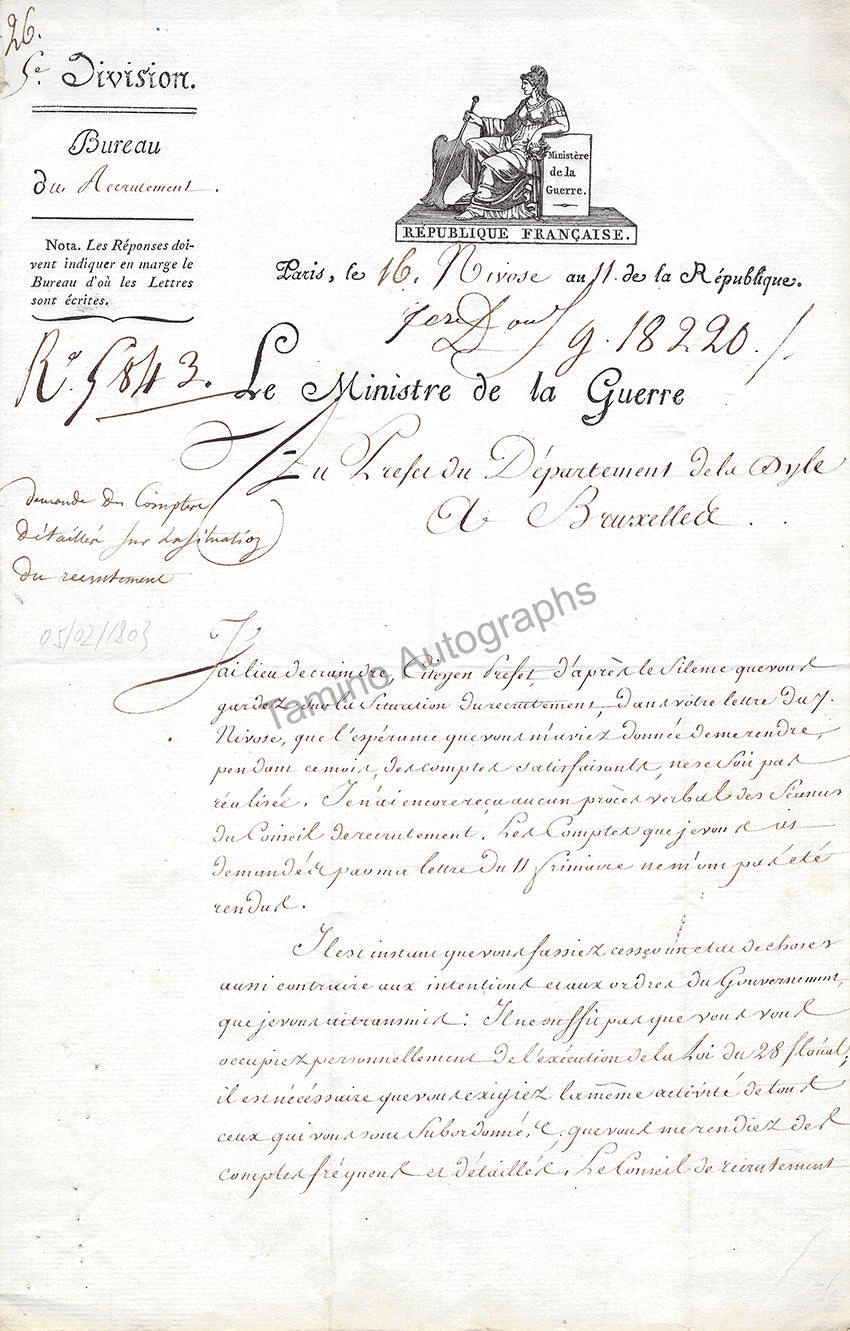 26.
5e. Division.
Bureau
du Recrutement.
Nota. Les Réponses doi-
vent indiquer en marge le
Bureau d'où les Lettres
sont écrites.
Ministère
de la
Guerre.
RÉPUBLIQUE FRANÇAISE.
Paris, le 16. Nivose an 11. de la République.
g. 18220.
Rd. 5843.
Le Ministre de la Guerre
Au Préfet du Département de la Dyle
A Bruxelles.
demande des Comptes
détaillés sur la situation
du recrutement
05/02/1803
Tamino Autographs
J'ai lieu de craindre, Citoyen Préfet, d'après le Silence que vous
gardez sur la Situation du recrutement, dans vôtre lettre du 7.
Nivose, que l'espérance que vous m'aviez donnée de me rendre,
pendant ce mois, des comptes satisfaisants, ne se soit pas
réalisée. Je n'ai encore reçu aucun procès verbal des Séances
du Conseil de recrutement. Les Comptes que je vous ai
demandés par ma lettre du 11 frimaire ne m'ont pas été
rendus.
Il est instant que vous fassiez cesser un état de choses
aussi contraire aux intentions et aux ordres du Gouvernement,
que je vous ai transmis: Il ne suffit pas que vous vous
occupiez personnellement de l'exécution de la Loi du 28 floréal;
il est nécessaire que vous exigiez la même activité de tous
ceux qui vous sont Subordonnés, que vous me rendiez des
comptes fréquens et détaillés. Le Conseil de recrutement